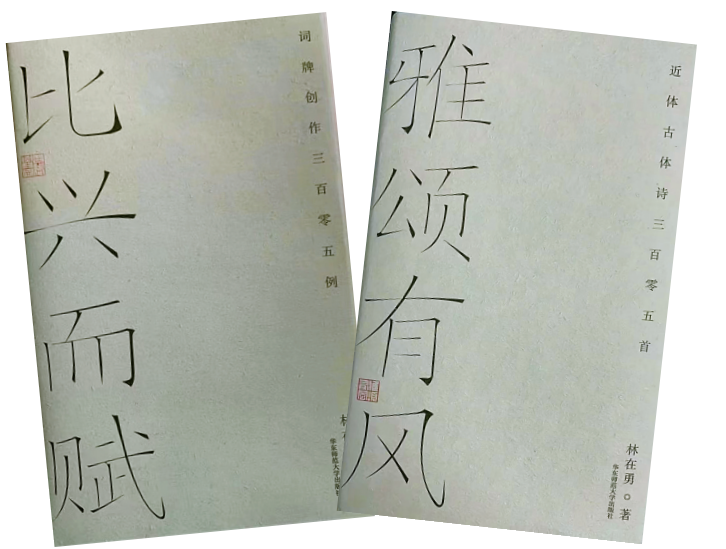 比兴而赋
词牌创作三百零五例
林
华东师范大学出版社
雅颂有风
近体古体诗三百零五首
林在勇 著
华东师范大学出版社